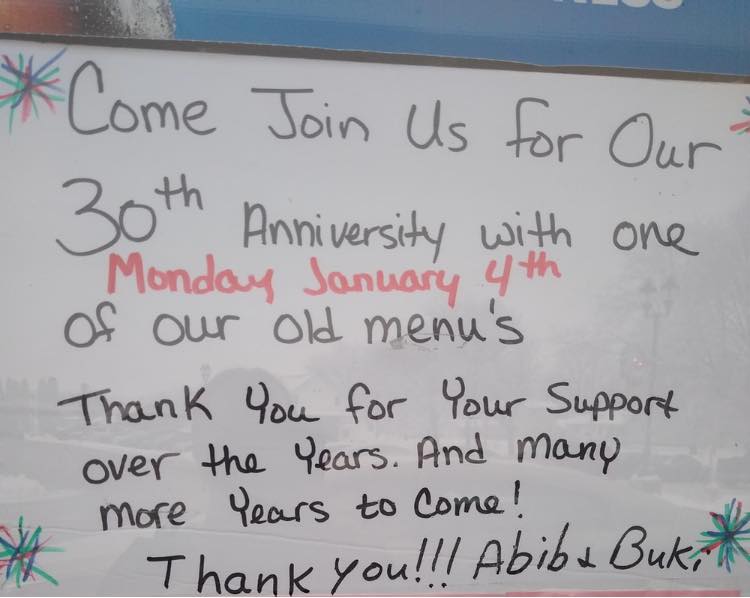 Come Join Us for Our
30th Anniversity with one
Monday January 4th
of our old menu's
Thank You for Your Support
over the Years. And many
more Years to Come!
Thank you!!! Abib & Buki